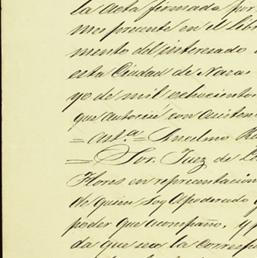 la Acta formada por
mo presente en el libro
mento del interesado
esta Ciudad de Nava
yo de mil ochocientos
que autorizó con asisten
=arta= Anselmo R
= Sor. Juez de L
Flores en representación
de quien soy apoderado y
poder que acompaño, y p
da que sea la corresp